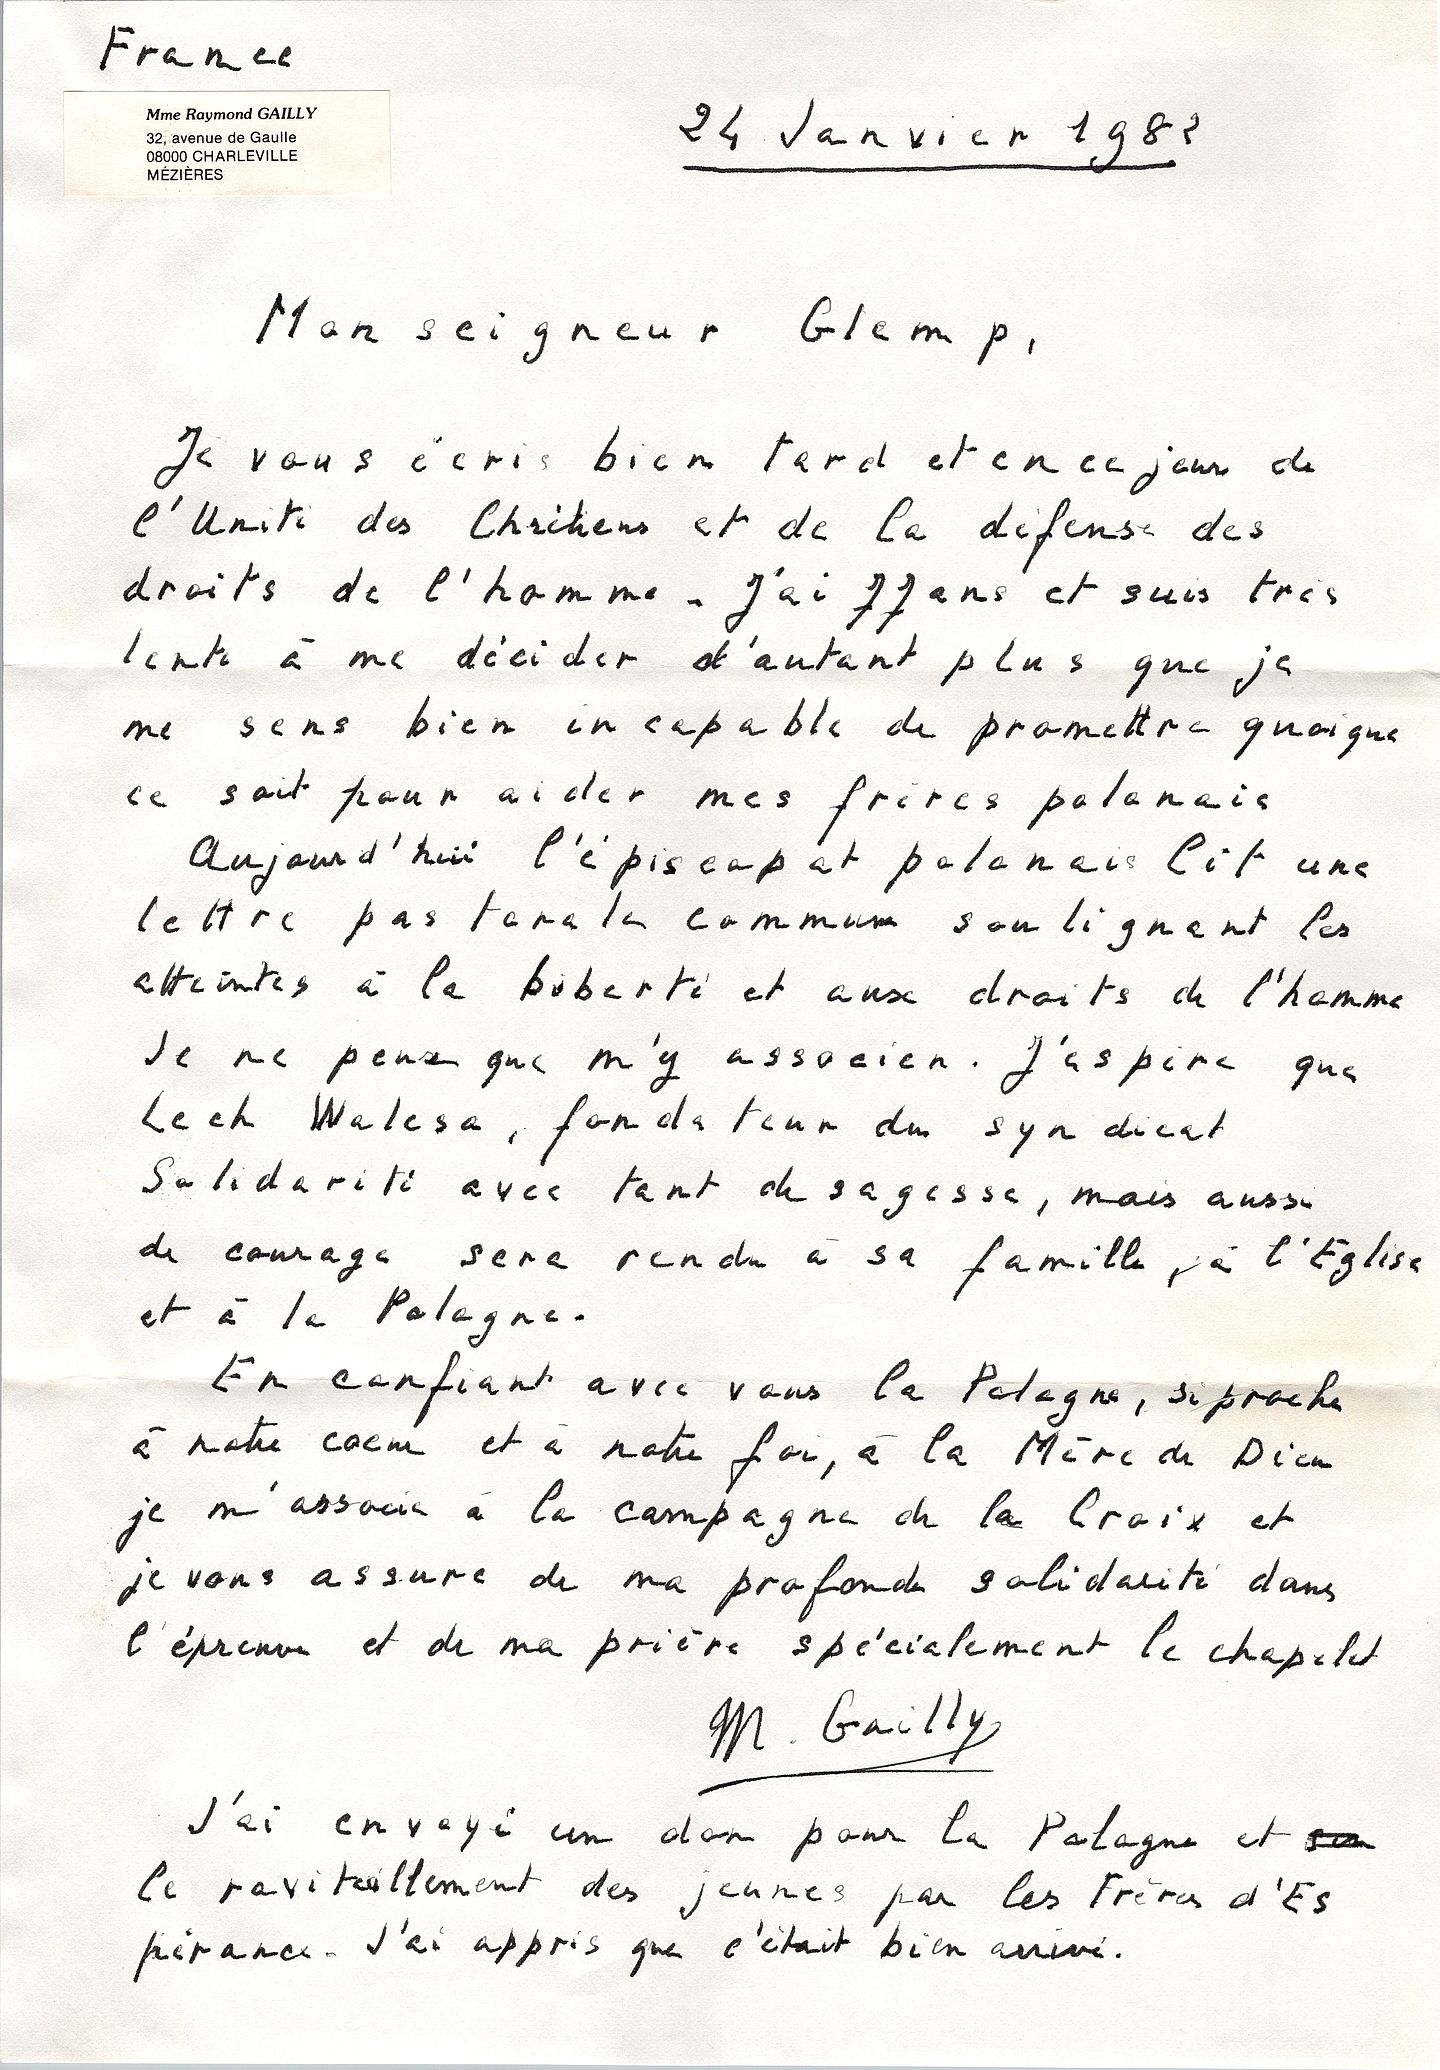 France
Mme Raymond GAILLY
32, avenue de Gaulle
08000 CHARLEVILLE
MÉZIÈRES
24 Janvier 1982
Monseigneur Glemp,
Je vous écris bien tard et en ce jour de
l'Unité des Chrétiens et de la défense des
droits de l'homme - J'ai 77 ans et suis très
lente à me décider d'autant plus que je
me sens bien incapable de promettre quoique
ce soit pour aider mes frères polonais
Aujourd'hui l'épiscopat polonais lit une
lettre pastorale commune soulignant les
atteintes à la liberté et aux droits de l'homme
Je ne peux que m'y associer. J'espère que
Lech Walesa, fondateur du syndicat
Solidarité avec tant de sagesse, mais aussi
de courage sera rendu à sa famille, à l'Eglise
et à la Pologne.
En confiant avec vous la Pologne, si proche
à notre coeur et à notre foi, à la Mère de Dieu
je m'associe à la campagne de la Croix et
je vous assure de ma profonde solidarité dans
l'épreuve et de ma prière spécialement le chapelet
M. Gailly
J'ai envoyé un don pour la Pologne et
le ravitaillement des jeunes par les Frères d'Es
pérance. J'ai appris que c'était bien arrivé.